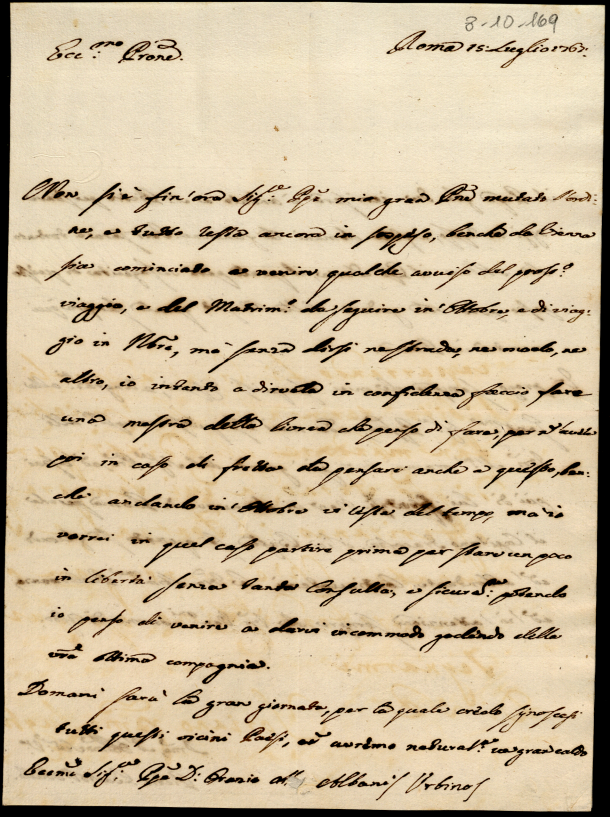 3-10-169
Ecc.mo Prone. Roma 15: Luglio 1767:
Non si è fin'ora Sig.re Ppe mio gran Pne mutato l'ordi=
ne, e tutto resta ancora in sospeso, benche da Vienna
sia cominciato a venire qualche avviso del pross.o
viaggio, e del Matrim.o da seguire in Ottobre, e di viag=
gio in Nbre, mà senza dirsi ne strada, ne modo, ne
altro, io intanto a dirvela in confidenza faccio fare
una mostra della livrea che penso di fare, per n'
in caso di fretta da pensare anche a questo, ben=
chè andando in Ottobre vi resta del tempo, mà io
vorrei in quel caso partire prima per stare un poco
in libertà senza tanta Consulta, e sicuram.e potendo
io penso di venire a darvi incommodo godendo della
vra ottima compagnia.
Domani sarà la gran giornata, per la quale credo
tutti questi vicini Paesi, ed avremo natural.te gran caldo
Sig.re Ppe D: Orazio Albani Urbino